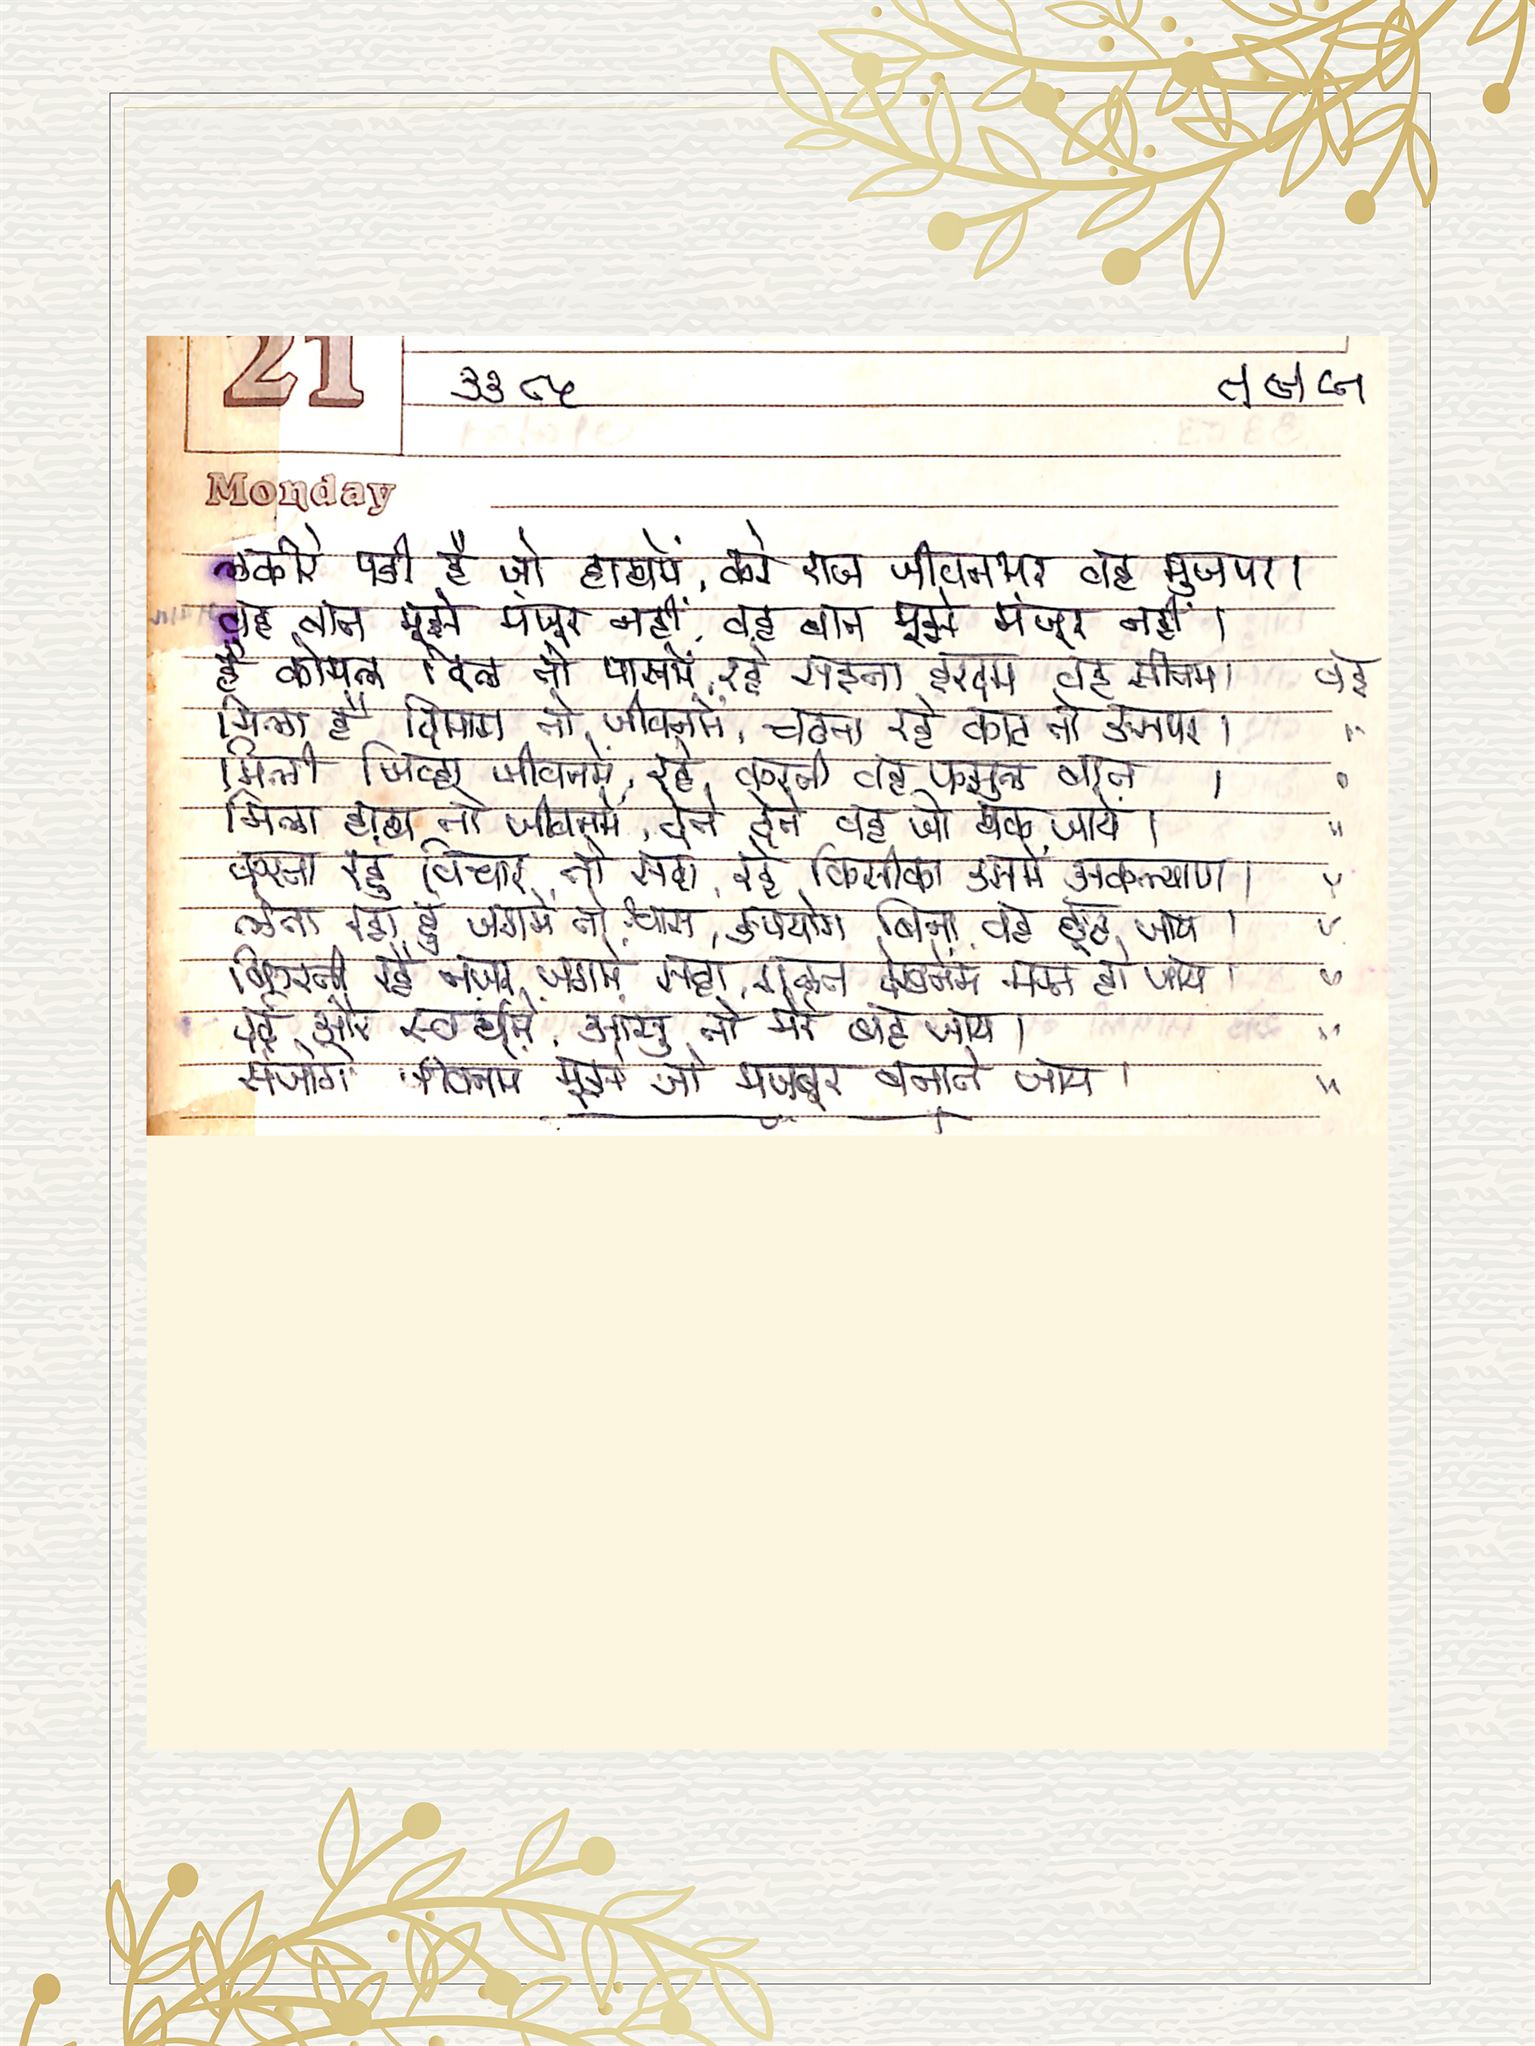 21
Monday
लकीरे पडी है जो हाथोमें, करे राज जीवनभर वह मुजपर।
वह बात मुझे मंजूर नहीं, वह बात मुझे मंजूर नहीं।
है कोमल दिल तो पासमें, रहे सहता हरदम वह सीतम। वह
मिला है दिमाग तो जीवनमें, चढता रहे काट तो उसपर। "
मिली जिव्हा जीवनमें, रहे करती वह फझुल बात ।
मिला हाथ तो जीवनमें, देते देते वह जो थक जाये। "
करता रहुं विचार तो सदा, रहे किसीका उसमें अकल्याण। "
लेता रहा हुं जगमें तो श्वास, उपयोग बिना वह छूट जाय। "
फिरती रहे नजर जगमें सदा, गलत देखनेमें मस्त हो जाय। "
दर्द और स्वार्थमें, आंसु तो मेरे बहे जाय। "
संजोग जीवनमें मुझे जो मजबूर बनाते जाय। "